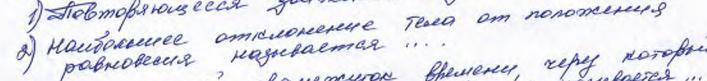 1) Повторяющееся
2) Наибольшее отклонение тела от положения
равновесия называется ....
времени, через который